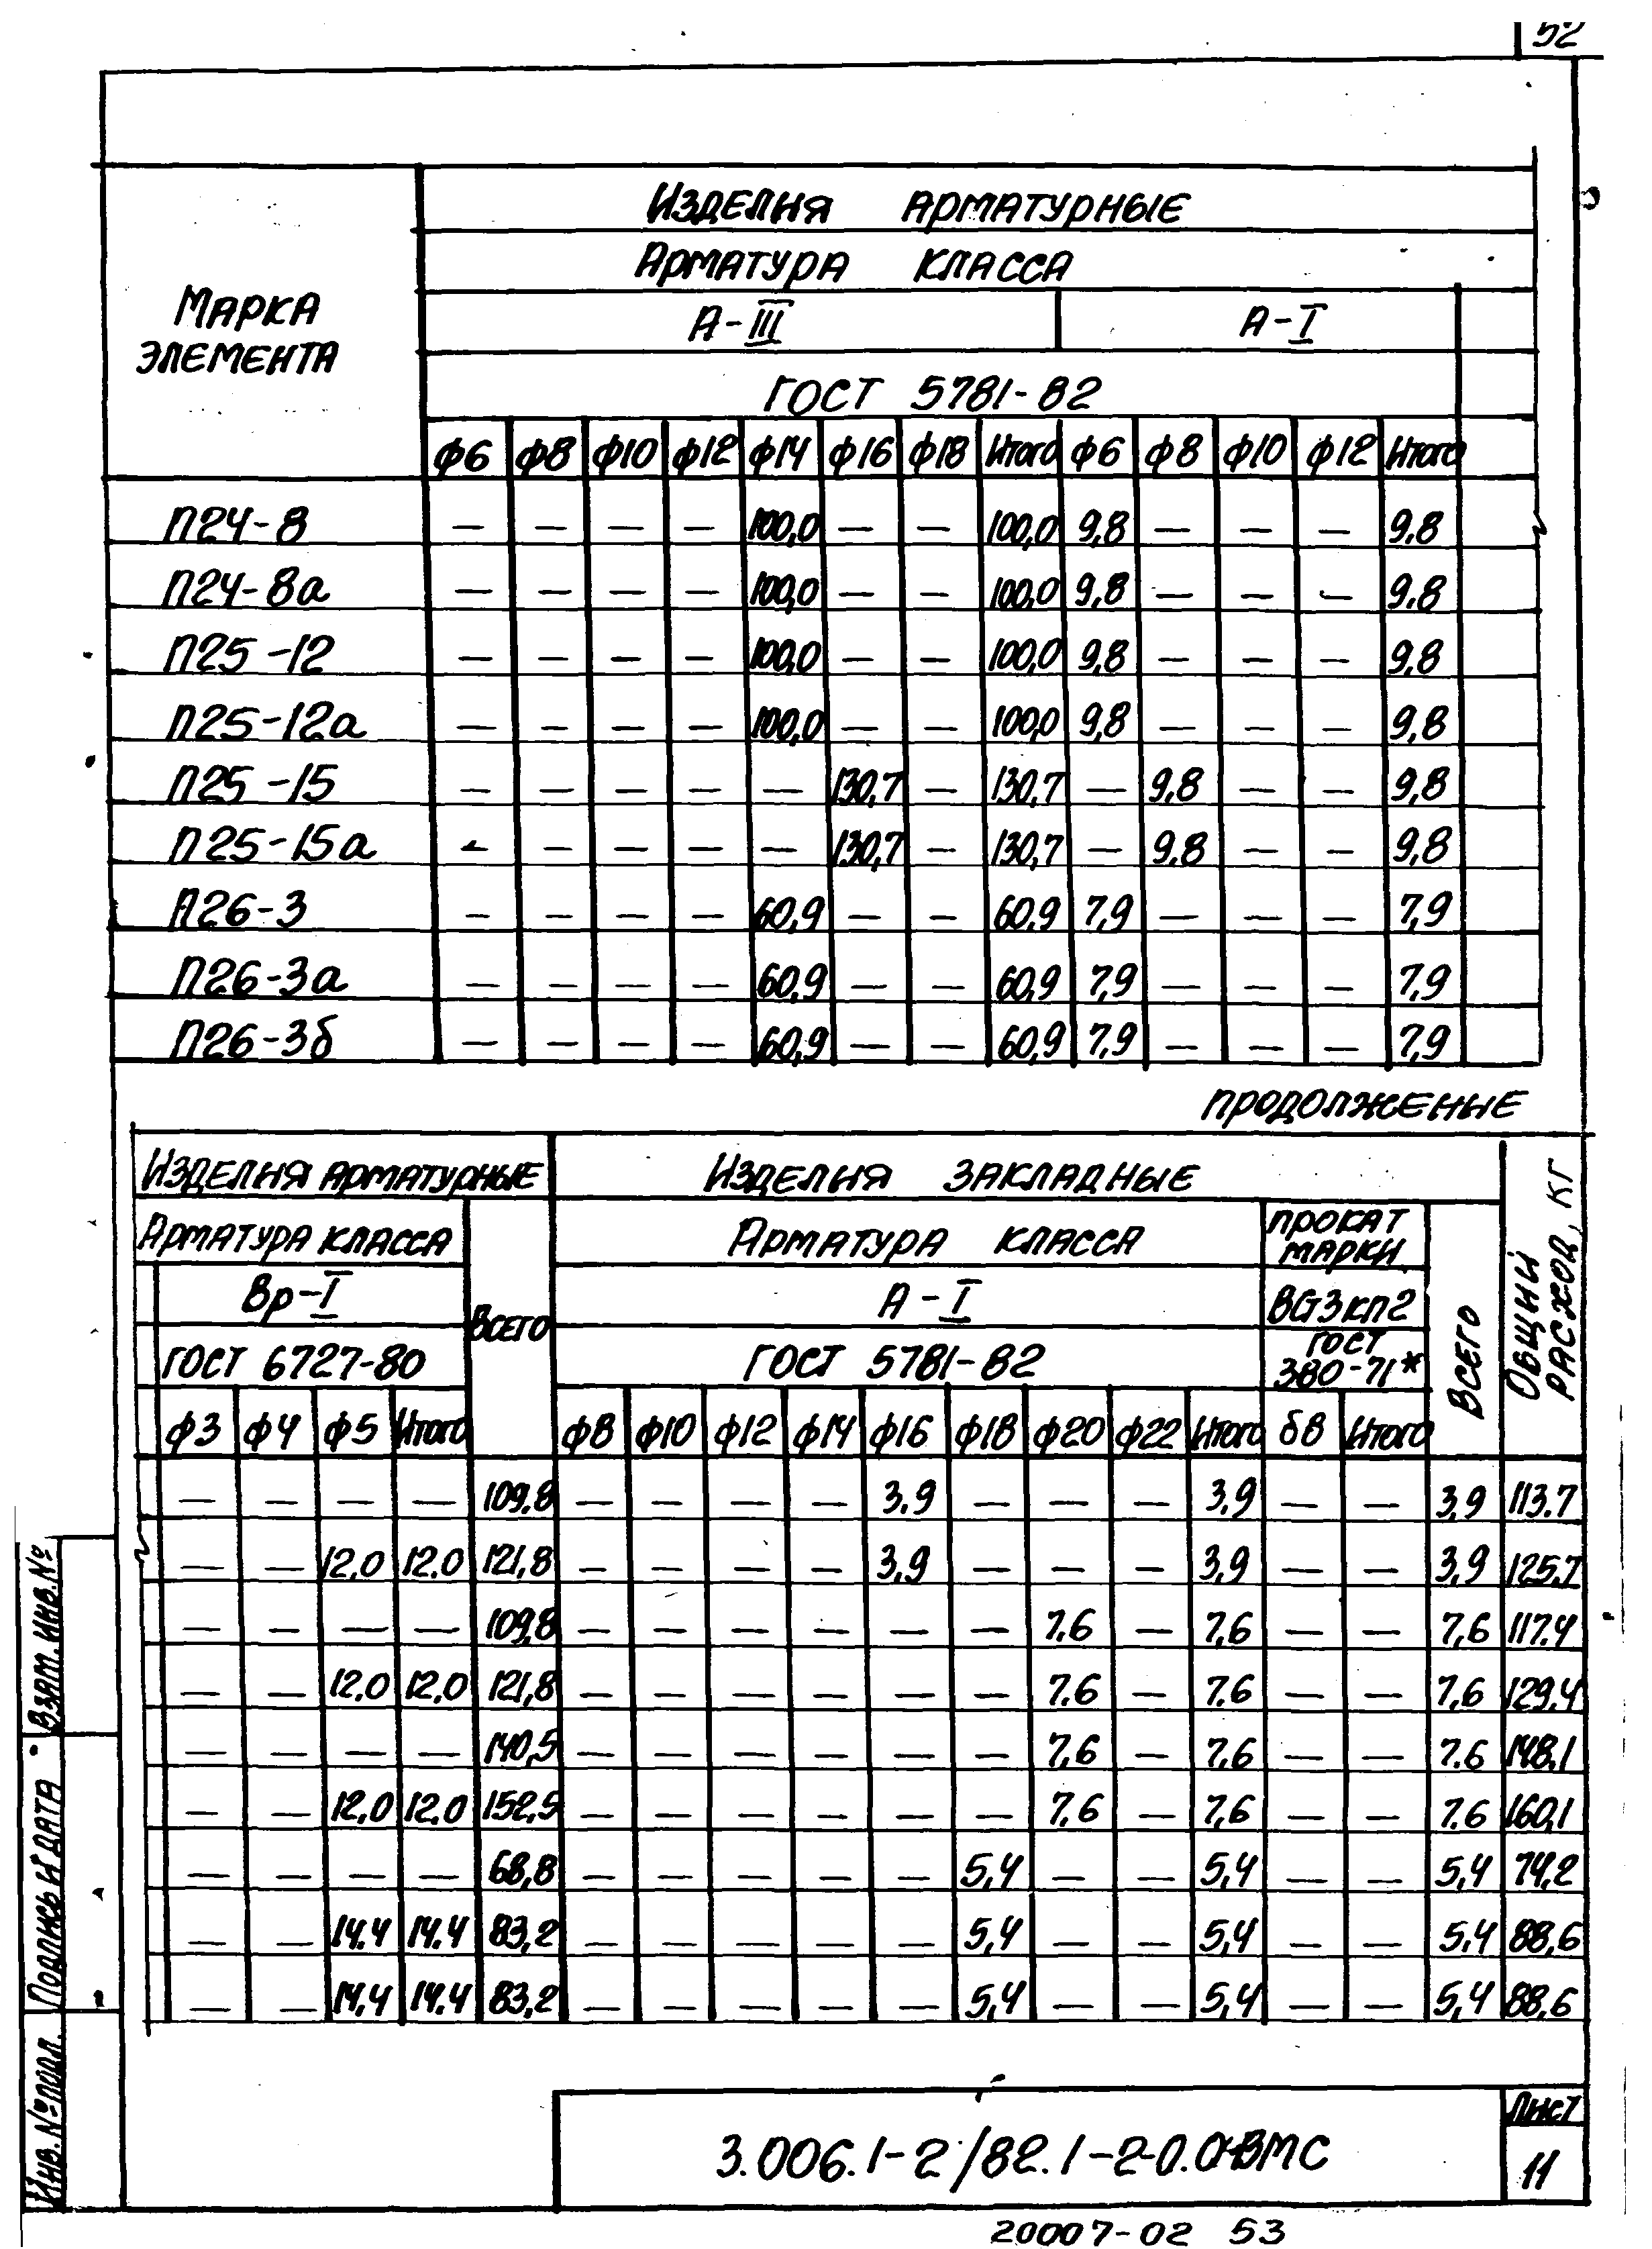 52
Изделия арматурные
Арматура класса
Марка элемента
А-III А-I
ГОСТ 5781-82
ф6 ф8 ф10 ф12 ф14 ф16 ф18 Итого ф6 ф8 ф10 ф12 Итого
П24-8 — — — — 100,0 — — 100,0 9,8 — — — 9,8
П24-8а — — — — 100,0 — — 100,0 9,8 — — — 9,8
П25-12 — — — — 100,0 — — 100,0 9,8 — — — 9,8
П25-12а — — — — 100,0 — — 100,0 9,8 — — — 9,8
П25-15 — — — — — 130,7 — 130,7 — 9,8 — — 9,8
П25-15а — — — — — 130,7 — 130,7 — 9,8 — — 9,8
П26-3 — — — — 60,9 — — 60,9 7,9 — — — 7,9
П26-3а — — — — 60,9 — — 60,9 7,9 — — — 7,9
П26-3б — — — — 60,9 — — 60,9 7,9 — — — 7,9
продолжение
Изделия арматурные Изделия закладные Общий расход, кг
Арматура класса Всего Арматура класса прокат марки Всего
Вр-I А-I ВСт3кп2
ГОСТ 6727-80 ГОСТ 5781-82 ГОСТ 380-71*
ф3 ф4 ф5 Итого ф8 ф10 ф12 ф14 ф16 ф18 ф20 ф22 Итого δ8 Итого
— — — — 109,8 — — — — 3,9 — — — 3,9 — — 3,9 113.7
— — 12.0 12.0 121,8 — — — — 3,9 — — — 3,9 — — 3,9 125.7
— — — — 109,8 — — — — — — 7.6 — 7,6 — — 7,6 117.4
— — 12.0 12.0 121,8 — — — — — — 7.6 — 7.6 — — 7,6 129.4
— — — — 140,5 — — — — — — 7,6 — 7,6 — — 7.6 148,1
— — 12,0 12.0 152,5 — — — — — — 7,6 — 7,6 — — 7.6 160,1
— — — — 68,8 — — — — — 5,4 — — 5,4 — — 5,4 74.2
— — 14.4 14.4 83,2 — — — — — 5,4 — — 5,4 — — 5,4 88,6
— — 14,4 14.4 83,2 — — — — — 5,4 — — 5,4 — — 5,4 88,6
Взам. инв. №
Подпись и дата
Инв. № подл.
3.006.1-2/82.1-2-0.0-ВМС
Лист
11
20007-02 53